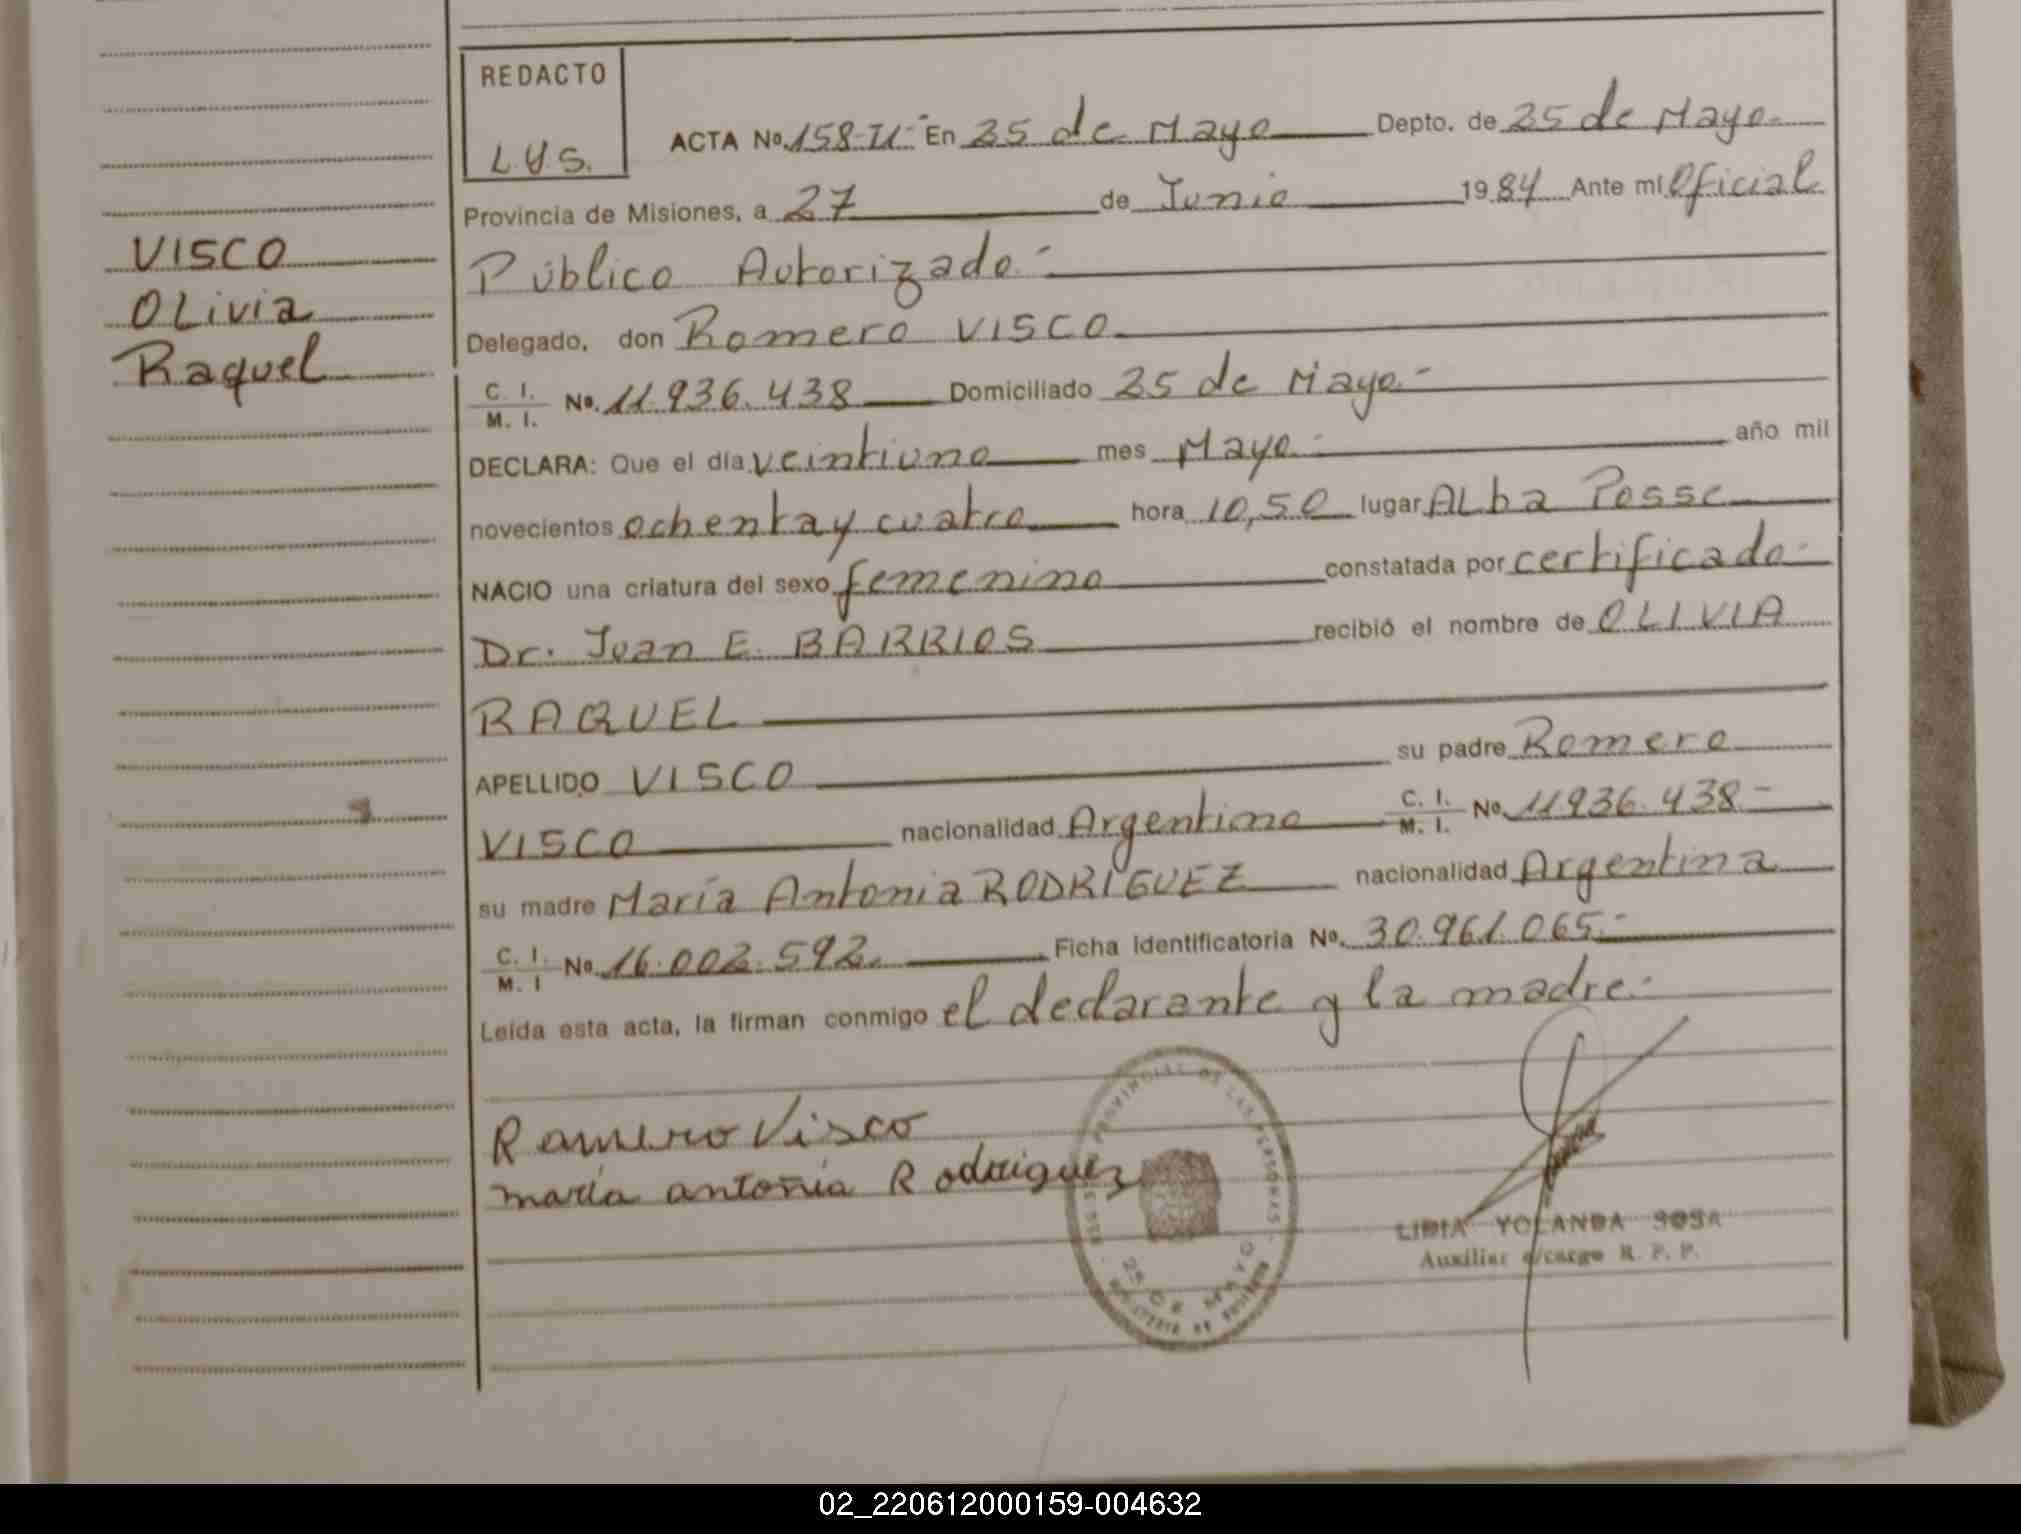 REDACTO
L.Y.S.
ACTA No. 158-II- En 25 de Mayo Depto. de 25 de Mayo.
Provincia de Misiones, a 27 de Junio 1984 Ante mí Oficial
Público Autorizado.-
Delegado, don Romero VISCO
C. I. M. I. No. 11.936.438 Domiciliado 25 de Mayo.-
DECLARA: Que el día veintiuno mes Mayo.- año mil
novecientos ochenta y cuatro hora 10,50 lugar ALba Posse
NACIO una criatura del sexo femenino constatada por certificado.-
Dr. Juan E. BARRIOS recibió el nombre de OLIVIA
RAQUEL
APELLIDO VISCO su padre Romero
VISCO nacionalidad Argentino C. I. M. I. No. 11936.438-
su madre María Antonia RODRIGUEZ nacionalidad Argentina
C. I. M. I No. 16.002.592. Ficha Identificatoria No. 30.961.065.-
Leída esta acta, la firman conmigo el declarante y la madre.-
Ramero Visco
maría antoñia Rodriguez
PROVINCIAL DE LAS PERSONAS
25 DE MAYO
MINISTERIO DE GOBIERNO
LIDIA YOLANDA SOSA
Auxiliar a/cargo R. P. P.
VISCO
OLivia
Raquel
02_220612000159-004632